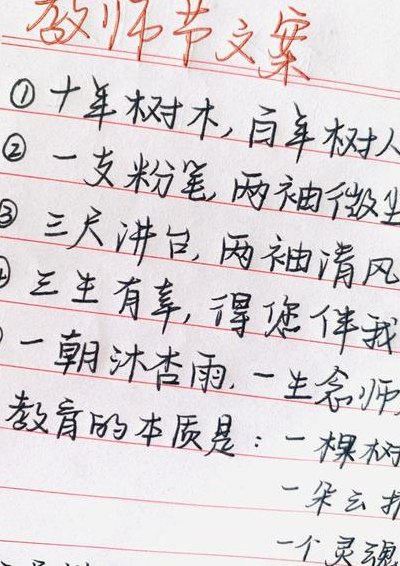 教师节文案
① 十年树木,百年树人
② 一支粉笔,两袖微尘
③ 三尺讲台,两袖清风
三生有幸,得您伴我
一朝沐杏雨,一生念师
教育的本质是:一棵树
一朵云
一个灵魂